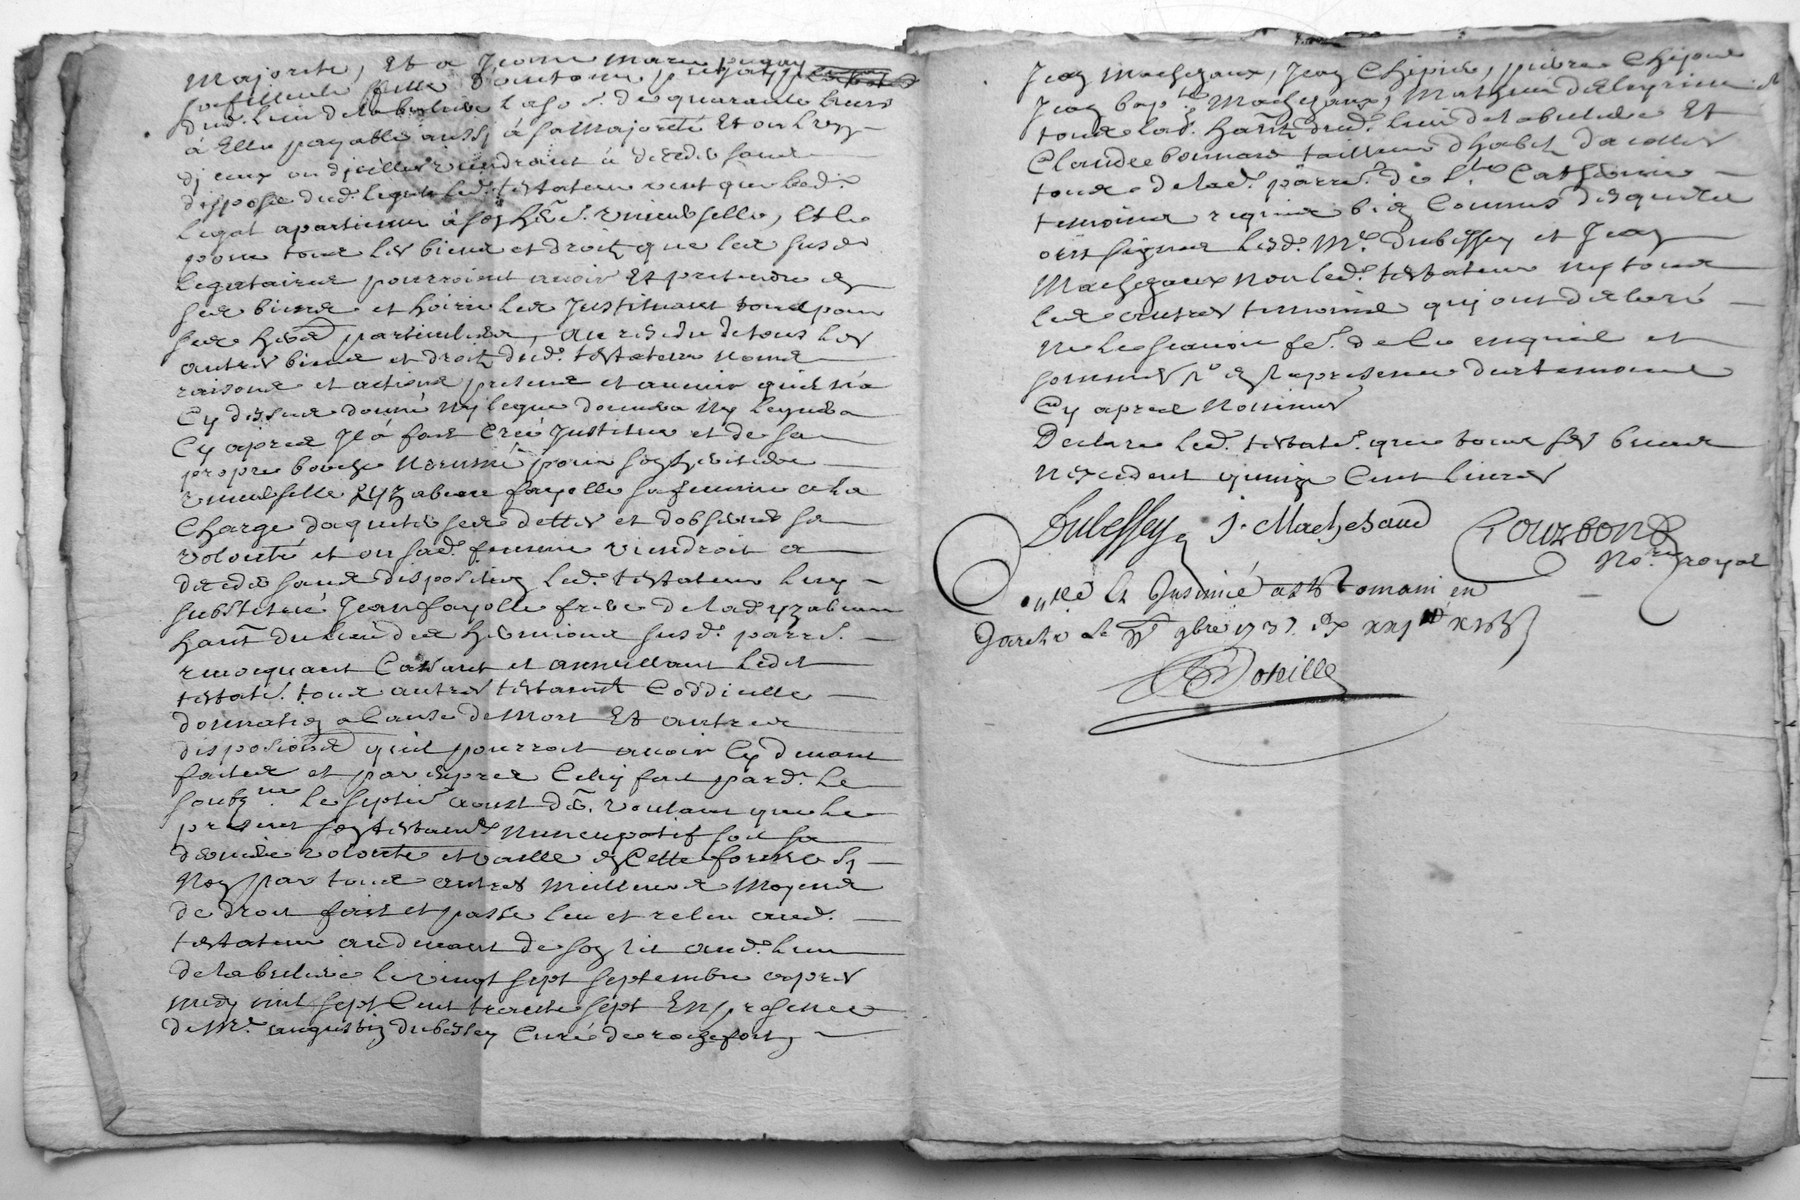 Majorité, Et a Jeanne Marie
sa filleule fille d'antoine
dud. lieu de la bruliere la so.e de quarante livres
à Elle payable aussy à sa Majorité Et ou luy
dj ceux ou djcelles viendroint à deceder sans
disposer dud. legat led. testateur veut que led.
legat apartienne à soy her.e universelle, Et le
pour tous les biens et droitz que les susd.
legataires pourroient avoir Et pretendre en
ses biens et hoirie les Justituant tous pour
ses her.s particuliers, au residu de tous les
autres biens et droitz dud. testateur noms
raisons et actions presens et avenir quil n'a
Cy dessus donné ny legué donnera ny leguera
Cy apres Jl a fait Créé Justitue et de sa
propre bouche nommé pour soy heritiere
universelle yzabeau fayolle sa femme a la
Charge daquiter ses dettes et dobserver sa
volonté et ou sad. femme viendroit a
deceder sans disposition led. testateur luy
substitue Jean fayolle frere de lad. yzabeau
hant du lieu des hermieux susd. parre.
revoquant Cassant et annullant ledit
testat. tous autres testamt Coddicille
donnation a Cause de Mort Et autres
dispositions quil pourroit avoir Cy devant
faites et par expres Celuy fait pard. le
soubz.né le septie aoust d.er voulant que le
present soy testament Nuncupatif soit sa
derniere volonté et vaille en Cette forme sy
Noy par tous autres meilleurs Moyens
de droit fait et passé leu et releu aud.
testateur audevant de soy lit aud. lieu
de la bruliere le vingt sept septembre apres
midy mil sept Cent trente sept En presence
de Mre. augustin dubessey Curé de rochefort,
Jean Machezaux, Jean Chipier, pierre Chipier
Jean bap.te Machezaux, Mathieu delagrime
tous lad. hant dud. lieu de la bruliere Et
Claude bonnard tailleur dhabit
tous de lad. parre. de Ste Catherine
temoins requis bien Connus desquels
ont signé lesd. Mre. dubessey et Jean
Machezaux non led. testateur ny tous
les autres temoins qui ont declaré
ne le scavoir fe. de ce enquis et
sommés en la presence des temoins
Cy apres Nommés
Declare led. testate. que tous ses biens
n'excedent quinze Cent livres
Dubessey J. Machesaud Courbon
No.re royal
Contrôlé et Insinué a St Romain en
Jarets le 9bre 1737.
Bonille